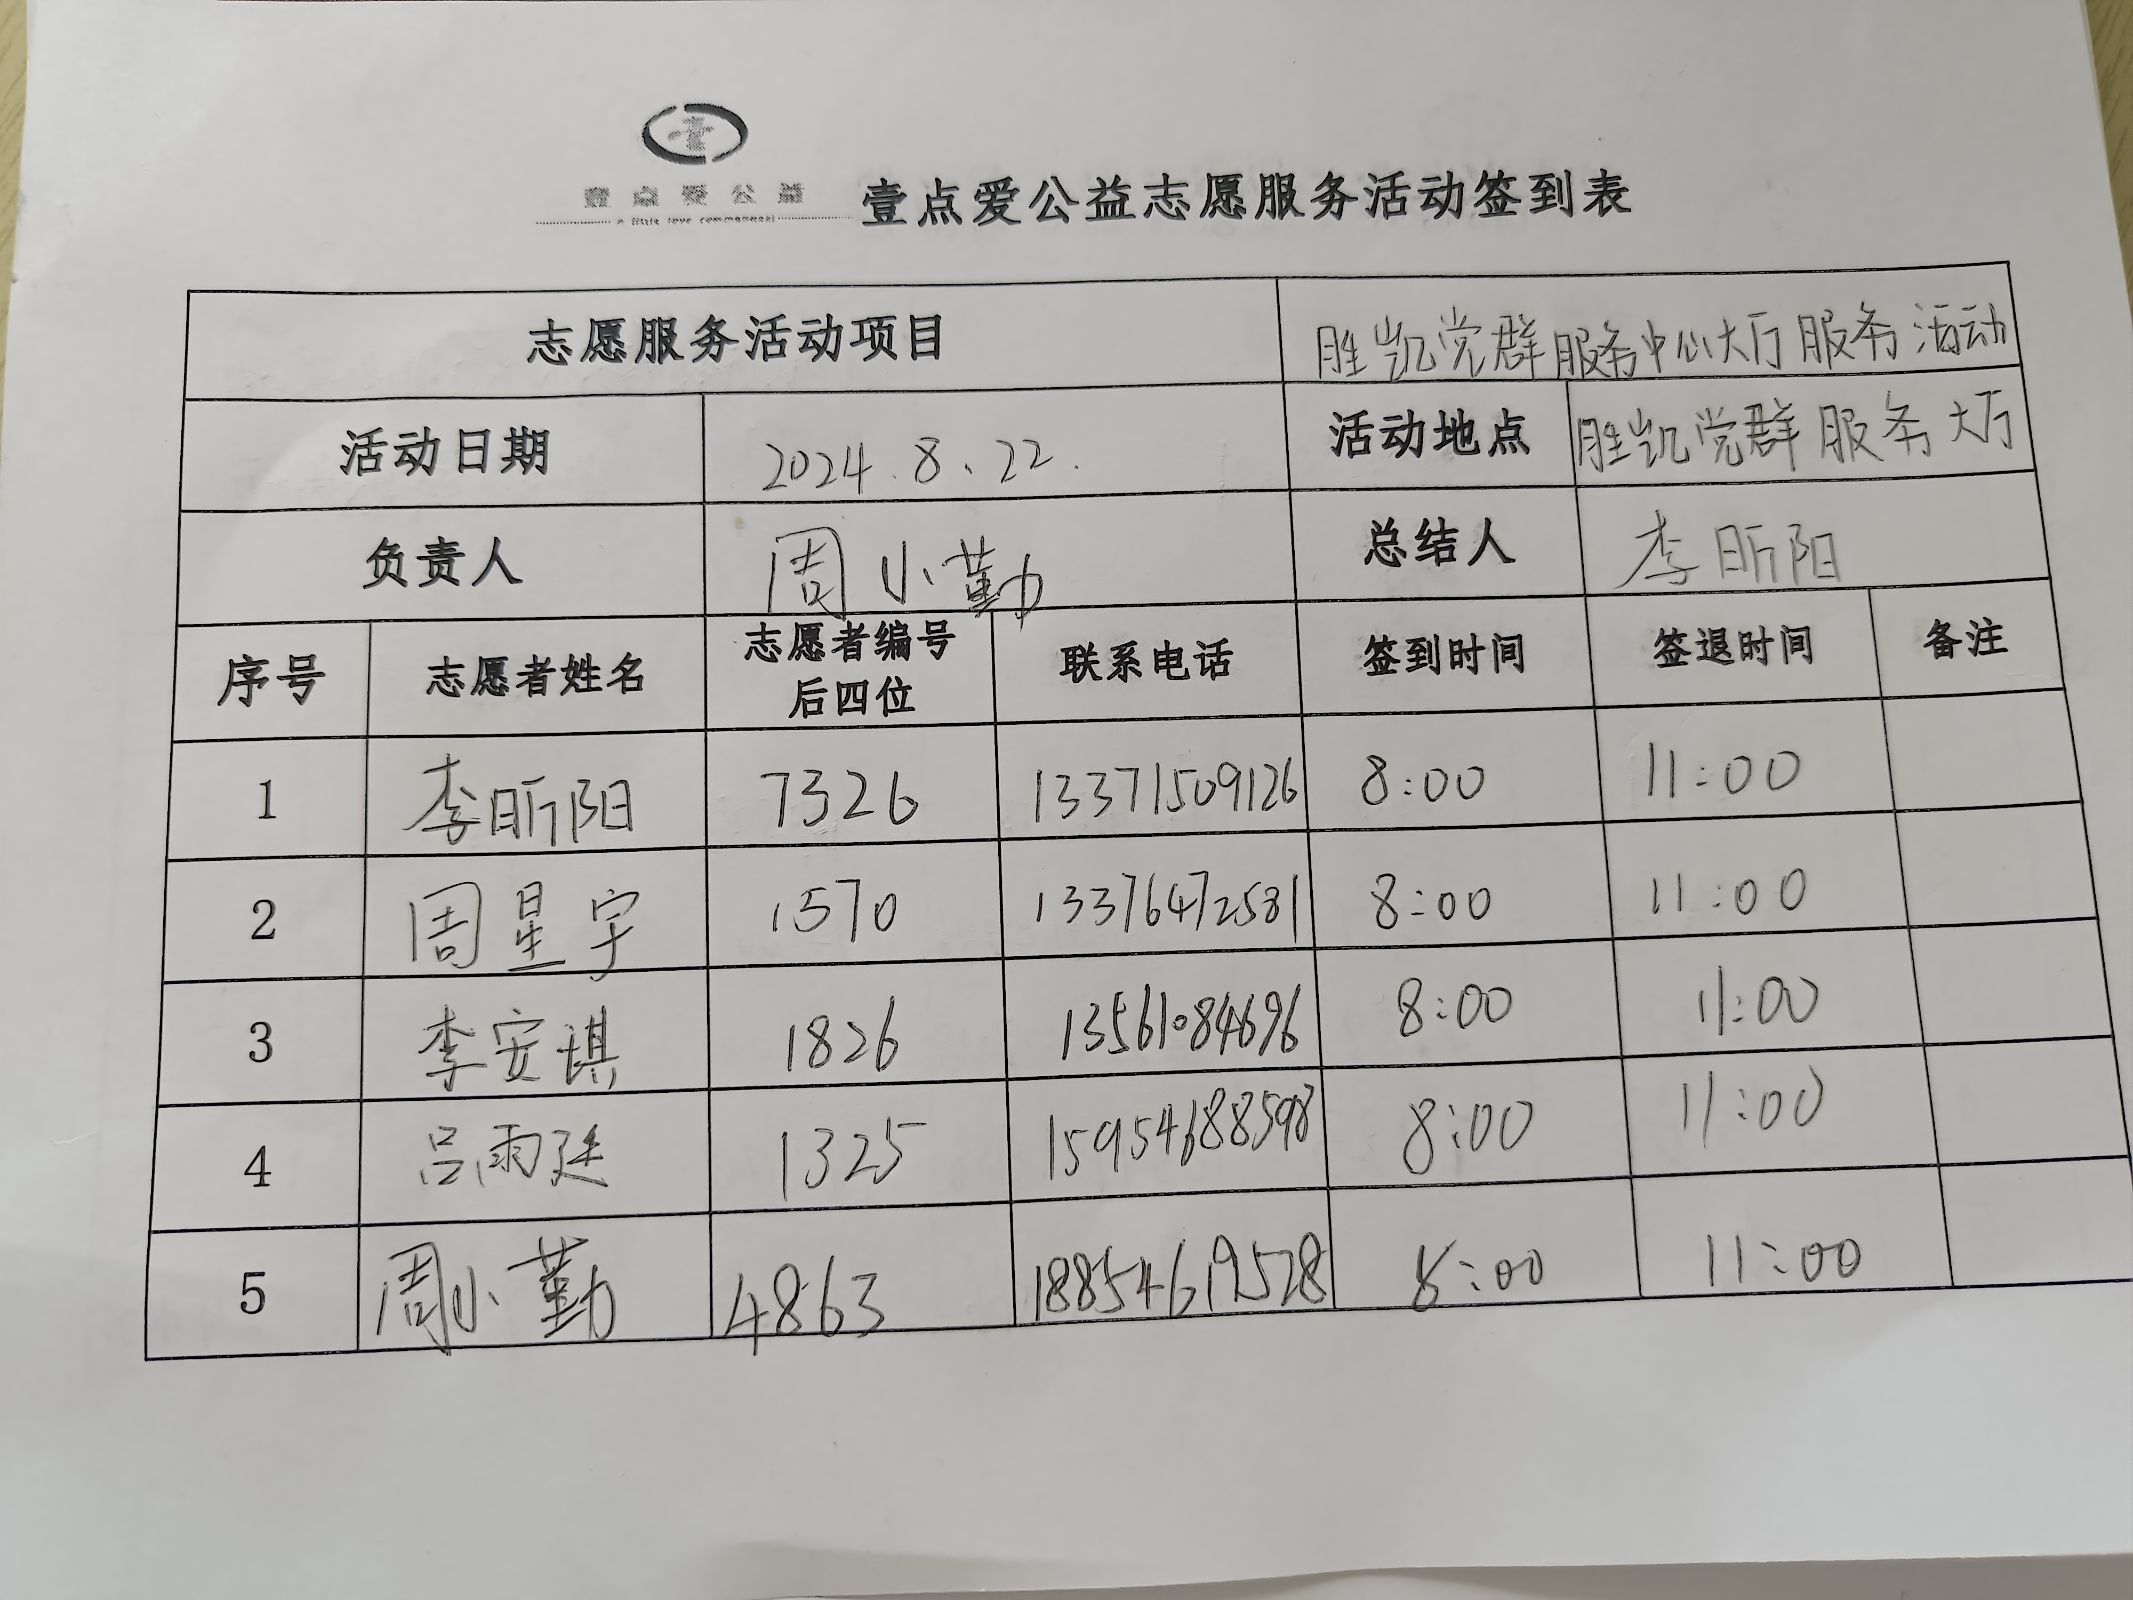 壹点爱公益
a little love commonweal
壹点爱公益志愿服务活动签到表
志愿服务活动项目 胜凯党群服务中心大厅服务活动
活动日期 2024.8.22. 活动地点 胜凯党群服务大厅
负责人 周小勤 总结人 李昕阳
序号 志愿者姓名 志愿者编号 联系电话 签到时间 签退时间 备注
后四位
1 李昕阳 7326 13371509126 8:00 11:00
2 周星宇 1570 13376472581 8:00 11:00
3 李安琪 1826 13561084696 8:00 11:00
4 吕雨廷 1325 15954688598 8:00 11:00
5 周小勤 4863 18854619528 8:00 11:00